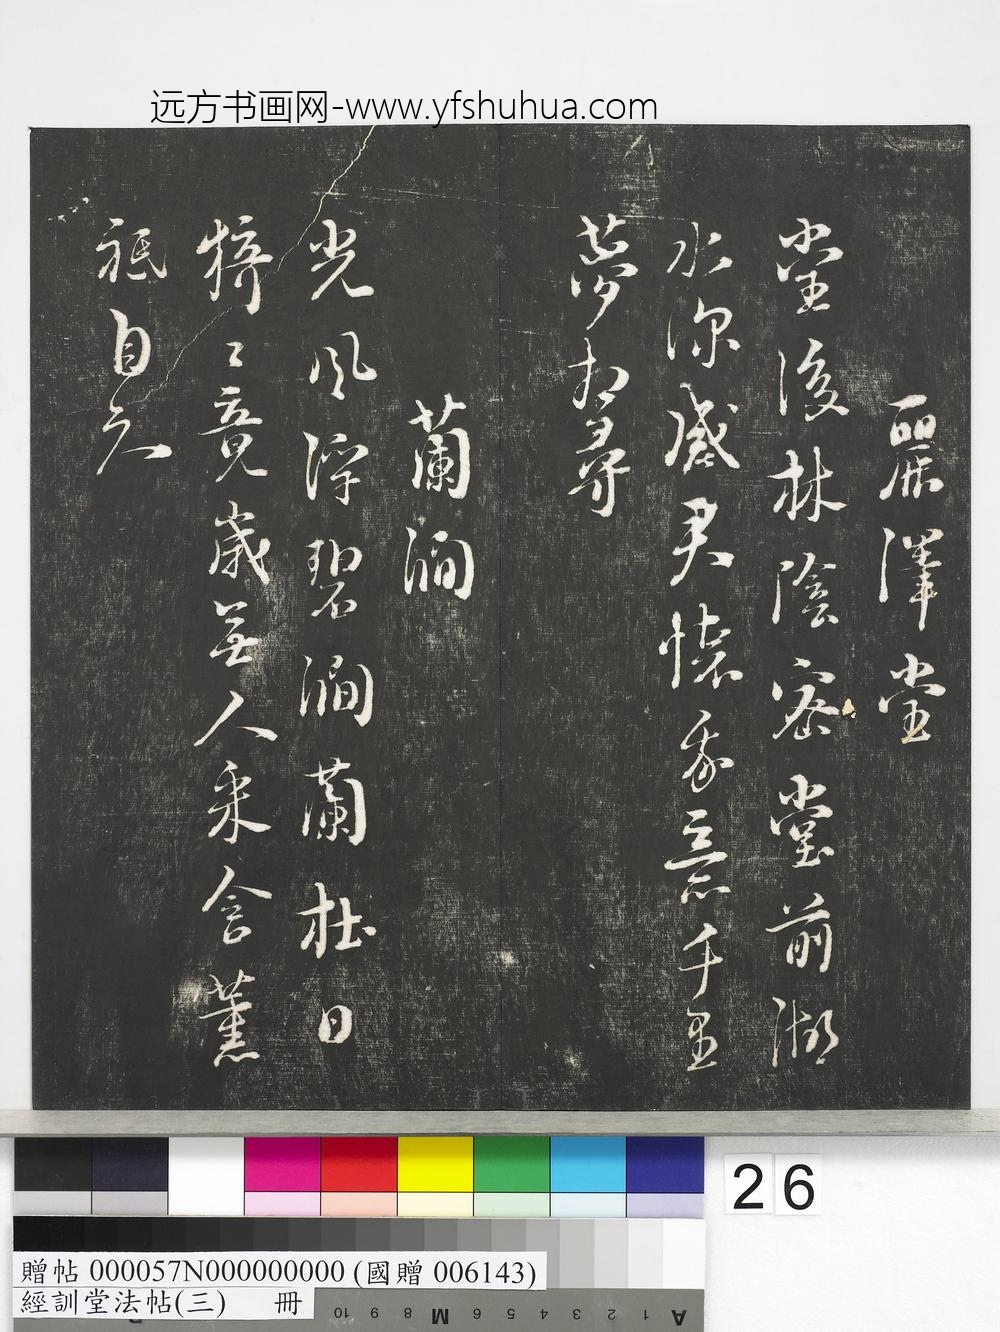 远方书画网-www.yfshuhua.com
麗澤堂
堂後林陰密堂前湖
水深感君懷我意千里
夢相尋
蘭澗
光風浮碧澗蘭杜日
猗〻竟歲無人采含薰
祇自知
26
贈帖 000057N000000000 (國贈 006143)
經訓堂法帖(三) 冊
10 9 8 M 6 5 4 3 2 1 A